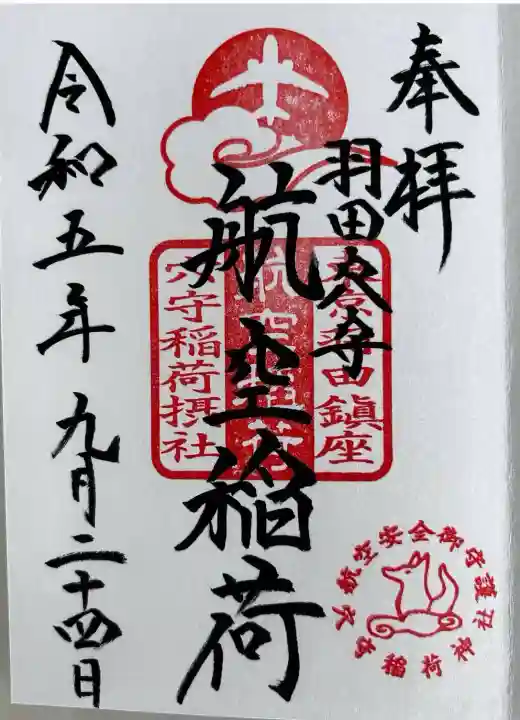 奉拝
羽田穴守
航空稲荷
令和五年九月二十四日
東京羽田鎮座
航空稲荷
穴守稲荷摂社
航空安全御守護社
穴守稲荷神社